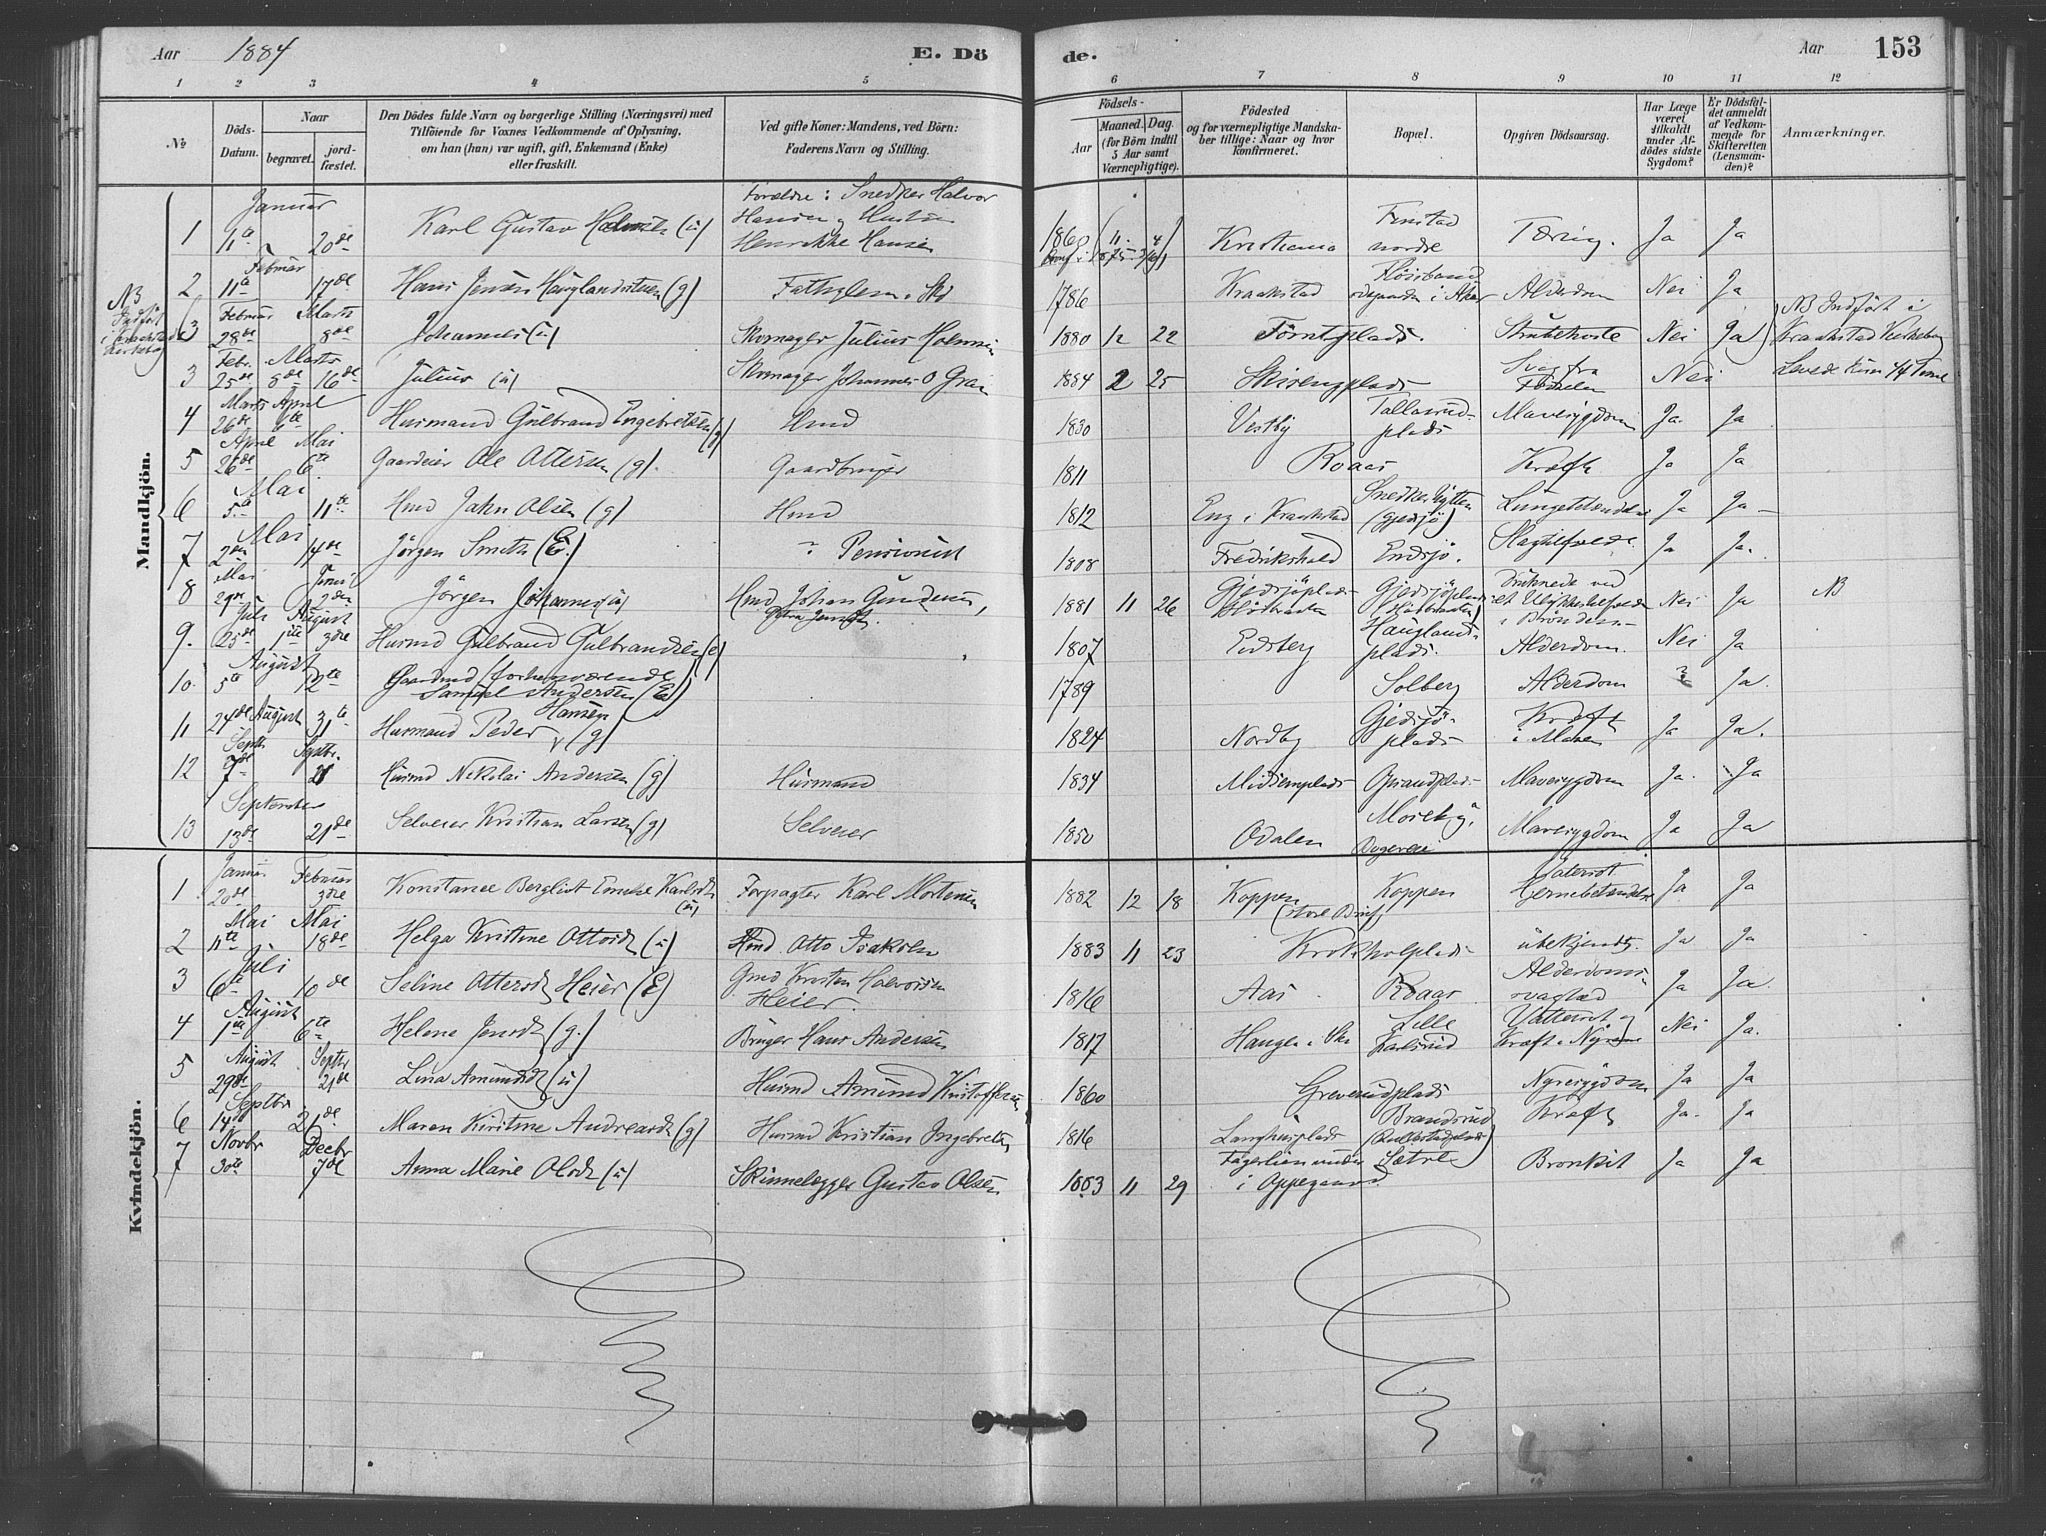 Aar 1884 E. Dö
de. Aar 153
1 2 3 4 5 6 7 8 9 10 11 12
№
Döds-Datum.
Naar
begravet. jord-fæstet.
Den Dödes fulde Navn og borgerlige Stilling (Næringsvei) med
Tilföiende for Voxnes Vedkommende af Oplysning,
om han (hun) var ugift, gift, Enkemand (Enke)
eller fraskilt.
Ved gifte Koner: Mandens, ved Börn:
Faderens Navn og Stilling.
Födsels-
Aar Maaned. Dag.
(for Börn indtil
5 Aar samt
Værnepligtige).
Födested
og for værnepligtige Mandska-
ber tillige: Naar og hvor
konfirmeret.
Bopæl.
Opgiven Dödsaarsag.
Har Læge
været
tilkaldt
under Af-
dödes sidste
Sygdom?
Er Dödsfal-
det anmeldt
af Vedkom-
mende for
Skifteretten
(Lensman-
den)?
Anmærkninger.
Mandkjön.
1 Januar 11te 20de Karl Gustav (u) Forældre: Snedker Halvor Hansen og Hustru Henrikke Hansen 1860 11 4 Kristiania Finstad nordre Tæring. Ja Ja
2 Februar 11te 17de Hans Jensen Hauglandstuen (g) Fattiglem i Ski 1786 Kraakstad i Aker Alderdom Nei Ja
NB Indført i Kraakstad Kirkebog
3 Februar 28de Marts 8de Johannes (u) Skomager Julius 1880 12 22 Strubehoste Nei Ja NB Indført i Kraakstad Kirkebog
3 Febr. 25de Marts 8de 16de Julius (u) Skomager Johannes O 1884 2 25 Svag fra Fødselen Nei Levede kun Time
4 Marts 26de April 6te Husmand Gulbrand Engebretsen (g) Hmd 1830 Vestby plads Mavesygdom Ja. Ja
5 April 26de Mai 6te Gaardeier Ole Ottersen (g). Gaardbruger 1811 Roaas Kræft Ja Ja
6 Mai 5te 11te Hmd John Olsen (g) Hmd 1812 Eng i Kraakstad Snedkerhytten (Gjedsjö) Ja Ja
7 Mai 2den 14de Jörgen Smith (E.) Pensionist 1808 Fredrikshald Endsjö. Slagtilfælde. Ja Ja.
8 Mai 29de Juni 2den Jörgen Johannes (u) Hmd Johan Gundersen, 1881 11 26 Gjedsjöplads Gjedsjöplads Druknede ved et Ulykkestilfælde i Brönden Nei Ja NB
9. Juli 25de August 1ste 3die Husmd Gulbrand Gulbrandsen (e) 1807 Eidsberg Hauglands-plads. Alderdom. Nei Ja
10. August 5te 12te Gaardmd (forhenværende) Samuel Andersen (E) 1789 Solberg Alderdom ? Ja.
11 24de August 31te Husmand Peder Hansen (g) 1824 Nordby Gjedsjö-plads Kræft i Maven Ja Ja.
12 Septbr 7de Septbr. 21 Husmd Nikolai Andersen (g) Husmand 1834 Mavesygdom Ja. Ja
13 September 13de 21de Selveier Kristian Larsen (g) Selveier 1850 Odalen Mavesygdom Ja Ja
Kvindekjön.
1 Januar 20de Februar 3die Konstance Bergliot Karlsdt (u) Forpagter Karl Mortensen 1882 12 18 Koppen Koppen Hjernebetændelse Ja Ja
2 Mai 11te Mai 18de Helga Kristine Ottosdt (u) Hmd. Otto Isaksen 1883 11 23 Krokholplads ubekjendt. Ja Ja
3 Juli 6te 10de Seline Ottersdt Heier (E) Gmd Kristen Halvorsen Heier. 1816 Aas Roaas Alderdoms-svaghed Ja Ja
4 August 1ste 6te Helene Jensdt (g.) Bruger Hans Andersen 1817 Haugen i Ski Lille Karlsrud Vattersot og Kræft i Nyrene Nei Ja.
5 August 29de Septbr 21de Lina Amundsdt (u) Husmd Amund Kristoffersen 1860 Greverudplads Nyresygdom Ja Ja
6 Septbr 14de 21de Maren Kirstine Andreasdt (g) Husmd Kristian Ingebretsen 1816 Langhusplads Brandsrud Kræft Ja. Ja
7 Novbr 30te Decbr 7de Anna Marie Olsdt (u) Skinnelægger Gustav Olsen 1883 11 29 Fagerlien under Sætre i Oppegaard Bronkit Ja Ja